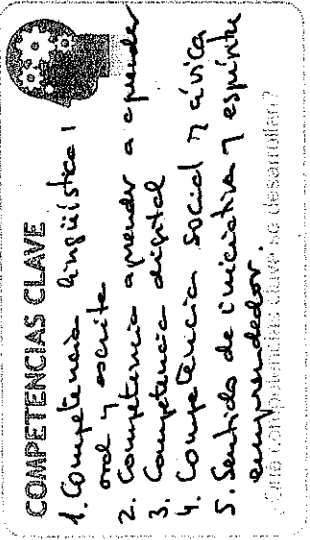 COMPETENCIAS CLAVE
1. Competencia lingüística
oral y escrita
2. Competencia aprender a aprender
3. Competencia digital
4. Competencia social y cívica
5. Sentido de iniciativa y espíritu
emprendedor.
¿Qué competencias clave se desarrollan?